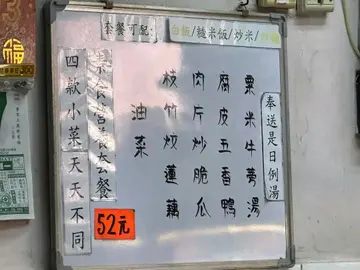 套餐可配:白飯/糙米饭/炒米/
奉送是日例湯
粟米牛蒡湯
腐皮五香鴨
肉片炒脆瓜
枝竹炆蓮藕
油菜
營養套餐
52元
四款小菜天天不同
福